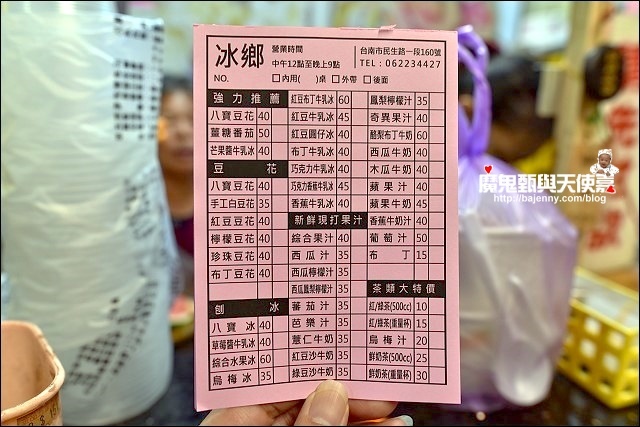 冰鄉
營業時間
中午12點至晚上9點
台南市民生路一段160號
TEL：062234427
NO.
□內用( )桌 □外帶 □後面
強力推薦
八寶豆花 40
薑糖番茄 50
芒果醬牛乳冰 40
豆花
八寶豆花 40
手工白豆花 35
紅豆豆花 40
檸檬豆花 40
珍珠豆花 40
布丁豆花 40
刨冰
八寶冰 40
草莓醬牛乳冰 40
綜合水果冰 60
烏梅冰 35
紅豆布丁牛乳冰 60
紅豆牛乳冰 45
紅豆圓仔冰 40
布丁牛乳冰 40
巧克力牛乳冰 40
巧克力香蕉牛乳冰 45
香蕉牛乳冰 40
新鮮現打果汁
綜合果汁 40
西瓜汁 35
西瓜檸檬汁 35
西瓜鳳梨檸檬汁 35
蕃茄汁 35
芭樂汁 35
薏仁牛奶 35
紅豆沙牛奶 35
綠豆沙牛奶 35
鳳梨檸檬汁 35
奇異果汁 40
酪梨布丁牛奶 60
西瓜牛奶 40
木瓜牛奶 40
蘋果汁 40
蘋果牛奶 45
香蕉牛奶汁 40
葡萄汁 50
布丁 15
茶類大特價
紅/綠茶(500cc) 10
紅/綠茶(重量杯) 15
烏梅汁 20
鮮奶茶(500cc) 25
鮮奶茶(重量杯) 30
魔鬼甄與天使嘉
http://bajenny.com/blog